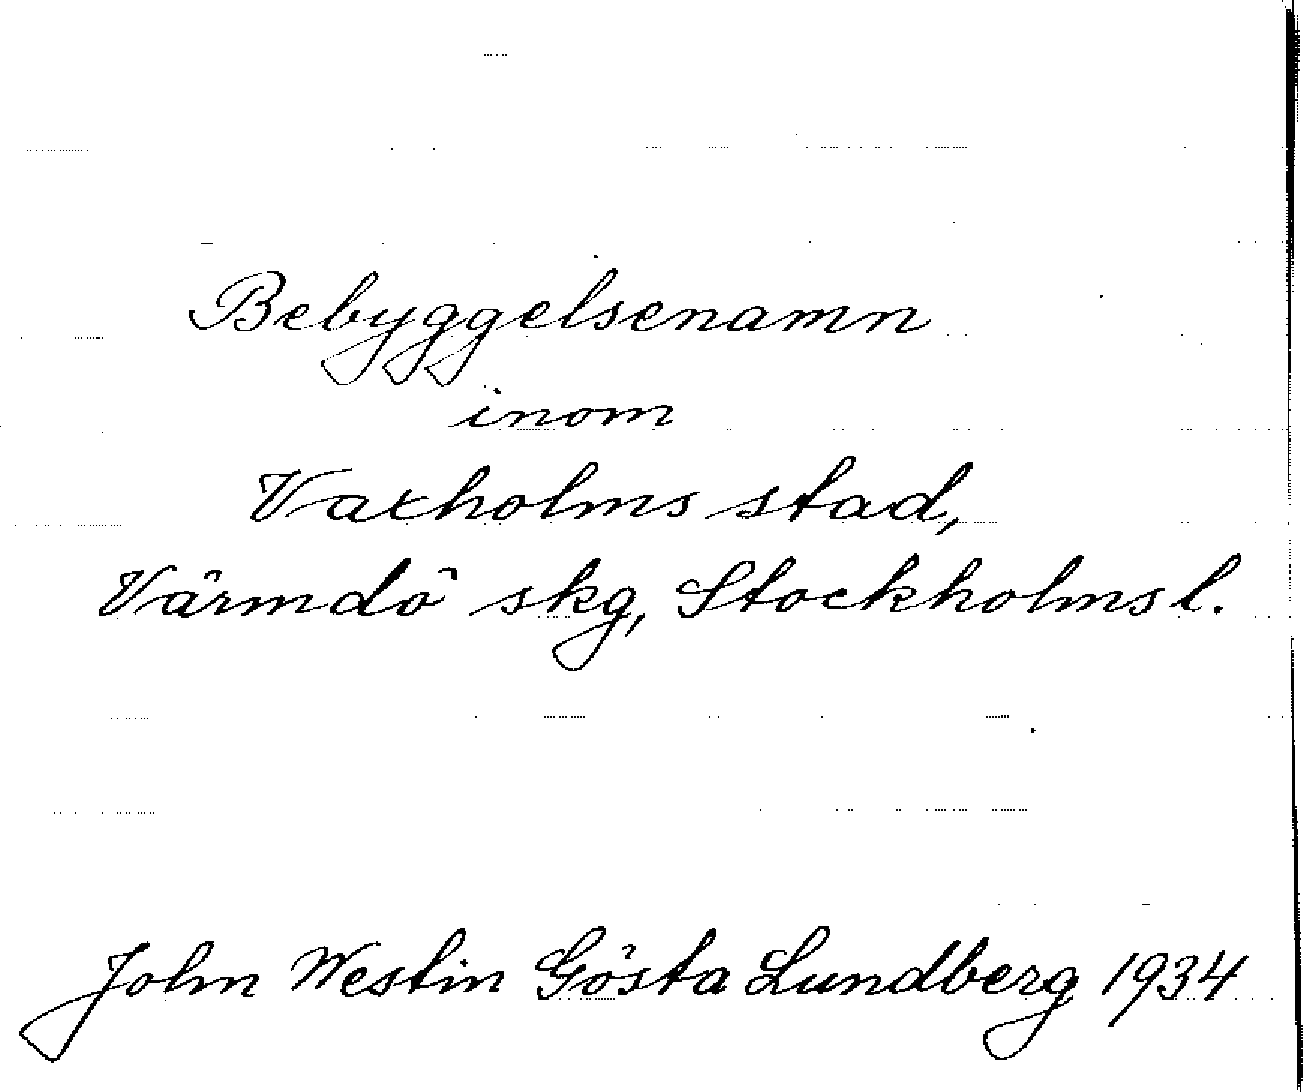 Bebyggelsenamn
inom
Vaxholms stad,
Värmdö skg, Stockholms l.
John Westin Gösta Lundberg 1934